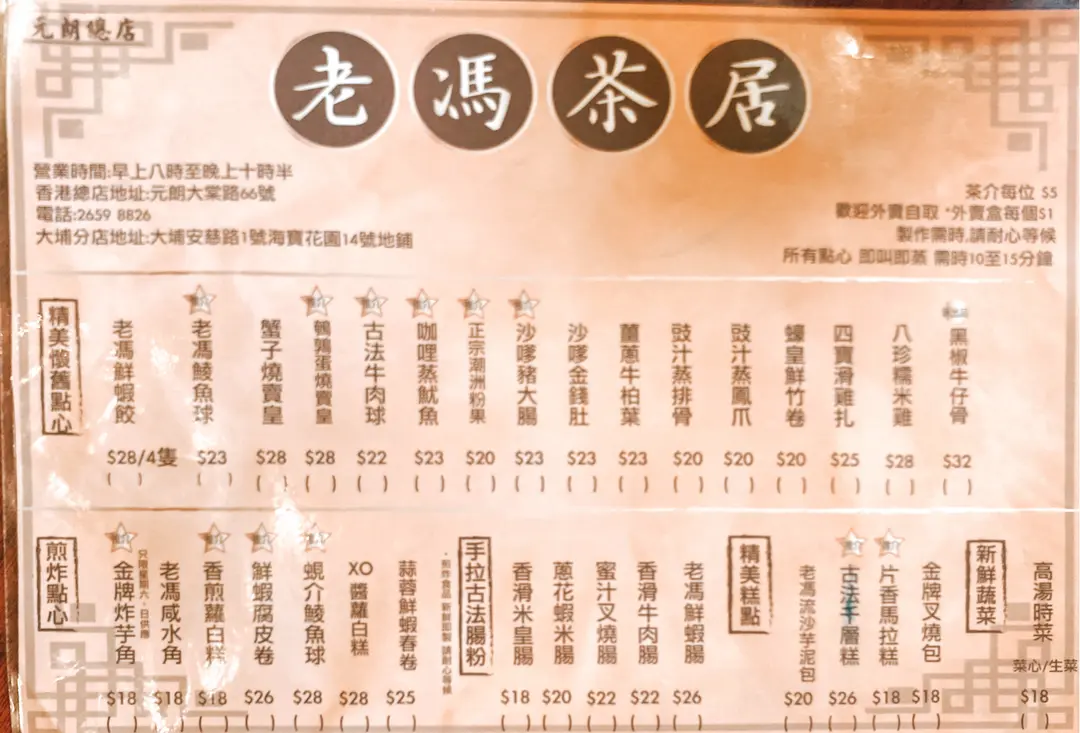 元朗總店
老馮茶居
營業時間:早上八時至晚上十時半
香港總店地址:元朗大棠路66號
電話:2659 8826
大埔分店地址:大埔安慈路1號海寶花園14號地鋪
茶介每位 $5
歡迎外賣自取 *外賣盒每個$1
製作需時,請耐心等候
所有點心 即叫即蒸 需時10至15分鐘
精美懷舊點心
老馮鮮蝦餃
$28/4隻
( )
老馮鯪魚球
$23
( )
蟹子燒賣皇
$28
( )
鵪鶉蛋燒賣皇
$28
( )
古法牛肉球
$22
( )
咖哩蒸魷魚
$23
( )
正宗潮洲粉果
$20
( )
沙嗲豬大腸
$23
( )
沙嗲金錢肚
$23
( )
薑蔥牛柏葉
$23
( )
豉汁蒸排骨
$20
( )
豉汁蒸鳳爪
$20
( )
蠔皇鮮竹卷
$20
( )
四寶滑雞扎
$25
( )
八珍糯米雞
$28
( )
黑椒牛仔骨
$32
( )
煎炸點心
金牌炸芋角
$18
( )
只限星期六、日供應
老馮咸水角
$18
( )
香煎蘿白糕
$18
( )
鮮蝦腐皮卷
$26
( )
蜆介鯪魚球
$28
( )
XO醬蘿白糕
$28
( )
蒜蓉鮮蝦春卷
$25
( )
·煎炸食品 新鮮即製 請耐心等候
手拉古法腸粉
香滑米皇腸
$18
( )
蔥花蝦米腸
$20
( )
蜜汁叉燒腸
$22
( )
香滑牛肉腸
$22
( )
老馮鮮蝦腸
$26
( )
精美糕點
老馮流沙芋泥包
$20
( )
古法千層糕
$26
( )
片香馬拉糕
$18
( )
金牌叉燒包
$18
( )
新鮮蔬菜
高湯時菜
菜心/生菜
$18
( )